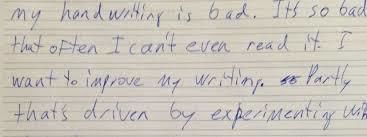 my handwriting is bad. It's so bad
that often I can't even read it. I
want to improve my writing. Partly
that's driven by experimenting with